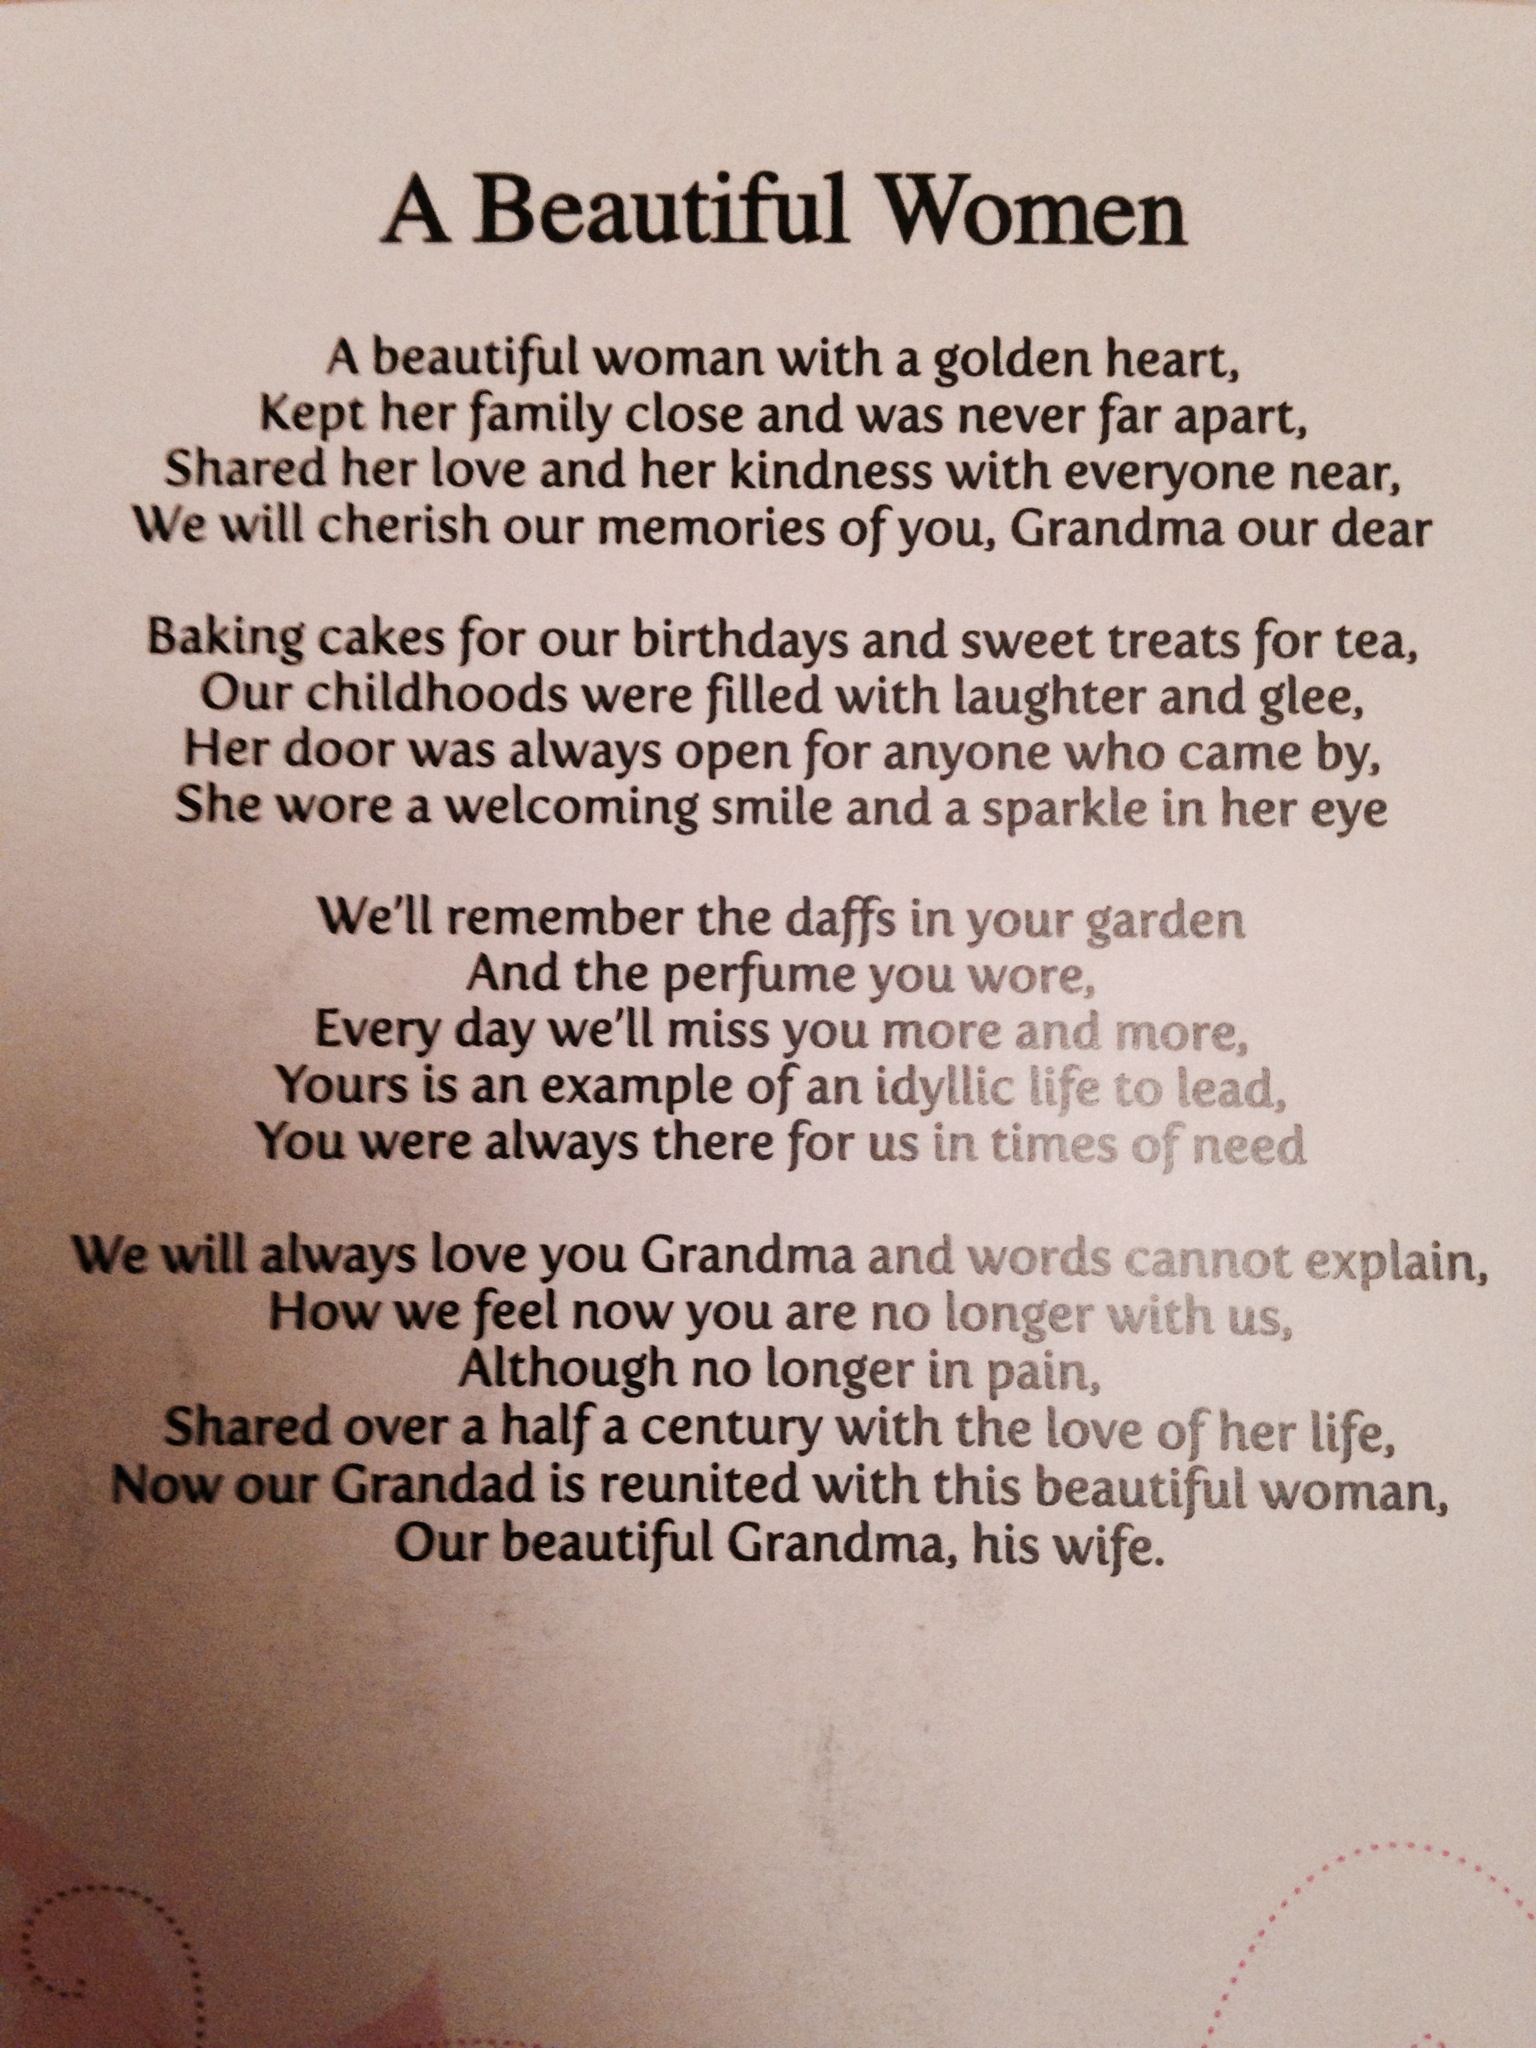 A Beautiful Women
A beautiful woman with a golden heart,
Kept her family close and was never far apart,
Shared her love and her kindness with everyone near,
We will cherish our memories of you, Grandma our dear
Baking cakes for our birthdays and sweet treats for tea,
Our childhoods were filled with laughter and glee,
Her door was always open for anyone who came by,
She wore a welcoming smile and a sparkle in her eye
We'll remember the daffs in your garden
And the perfume you wore,
Every day we'll miss you more and more,
Yours is an example of an idyllic life to lead,
You were always there for us in times of need
We will always love you Grandma and words cannot explain,
How we feel now you are no longer with us,
Although no longer in pain,
Shared over a half a century with the love of her life,
Now our Grandad is reunited with this beautiful woman,
Our beautiful Grandma, his wife.